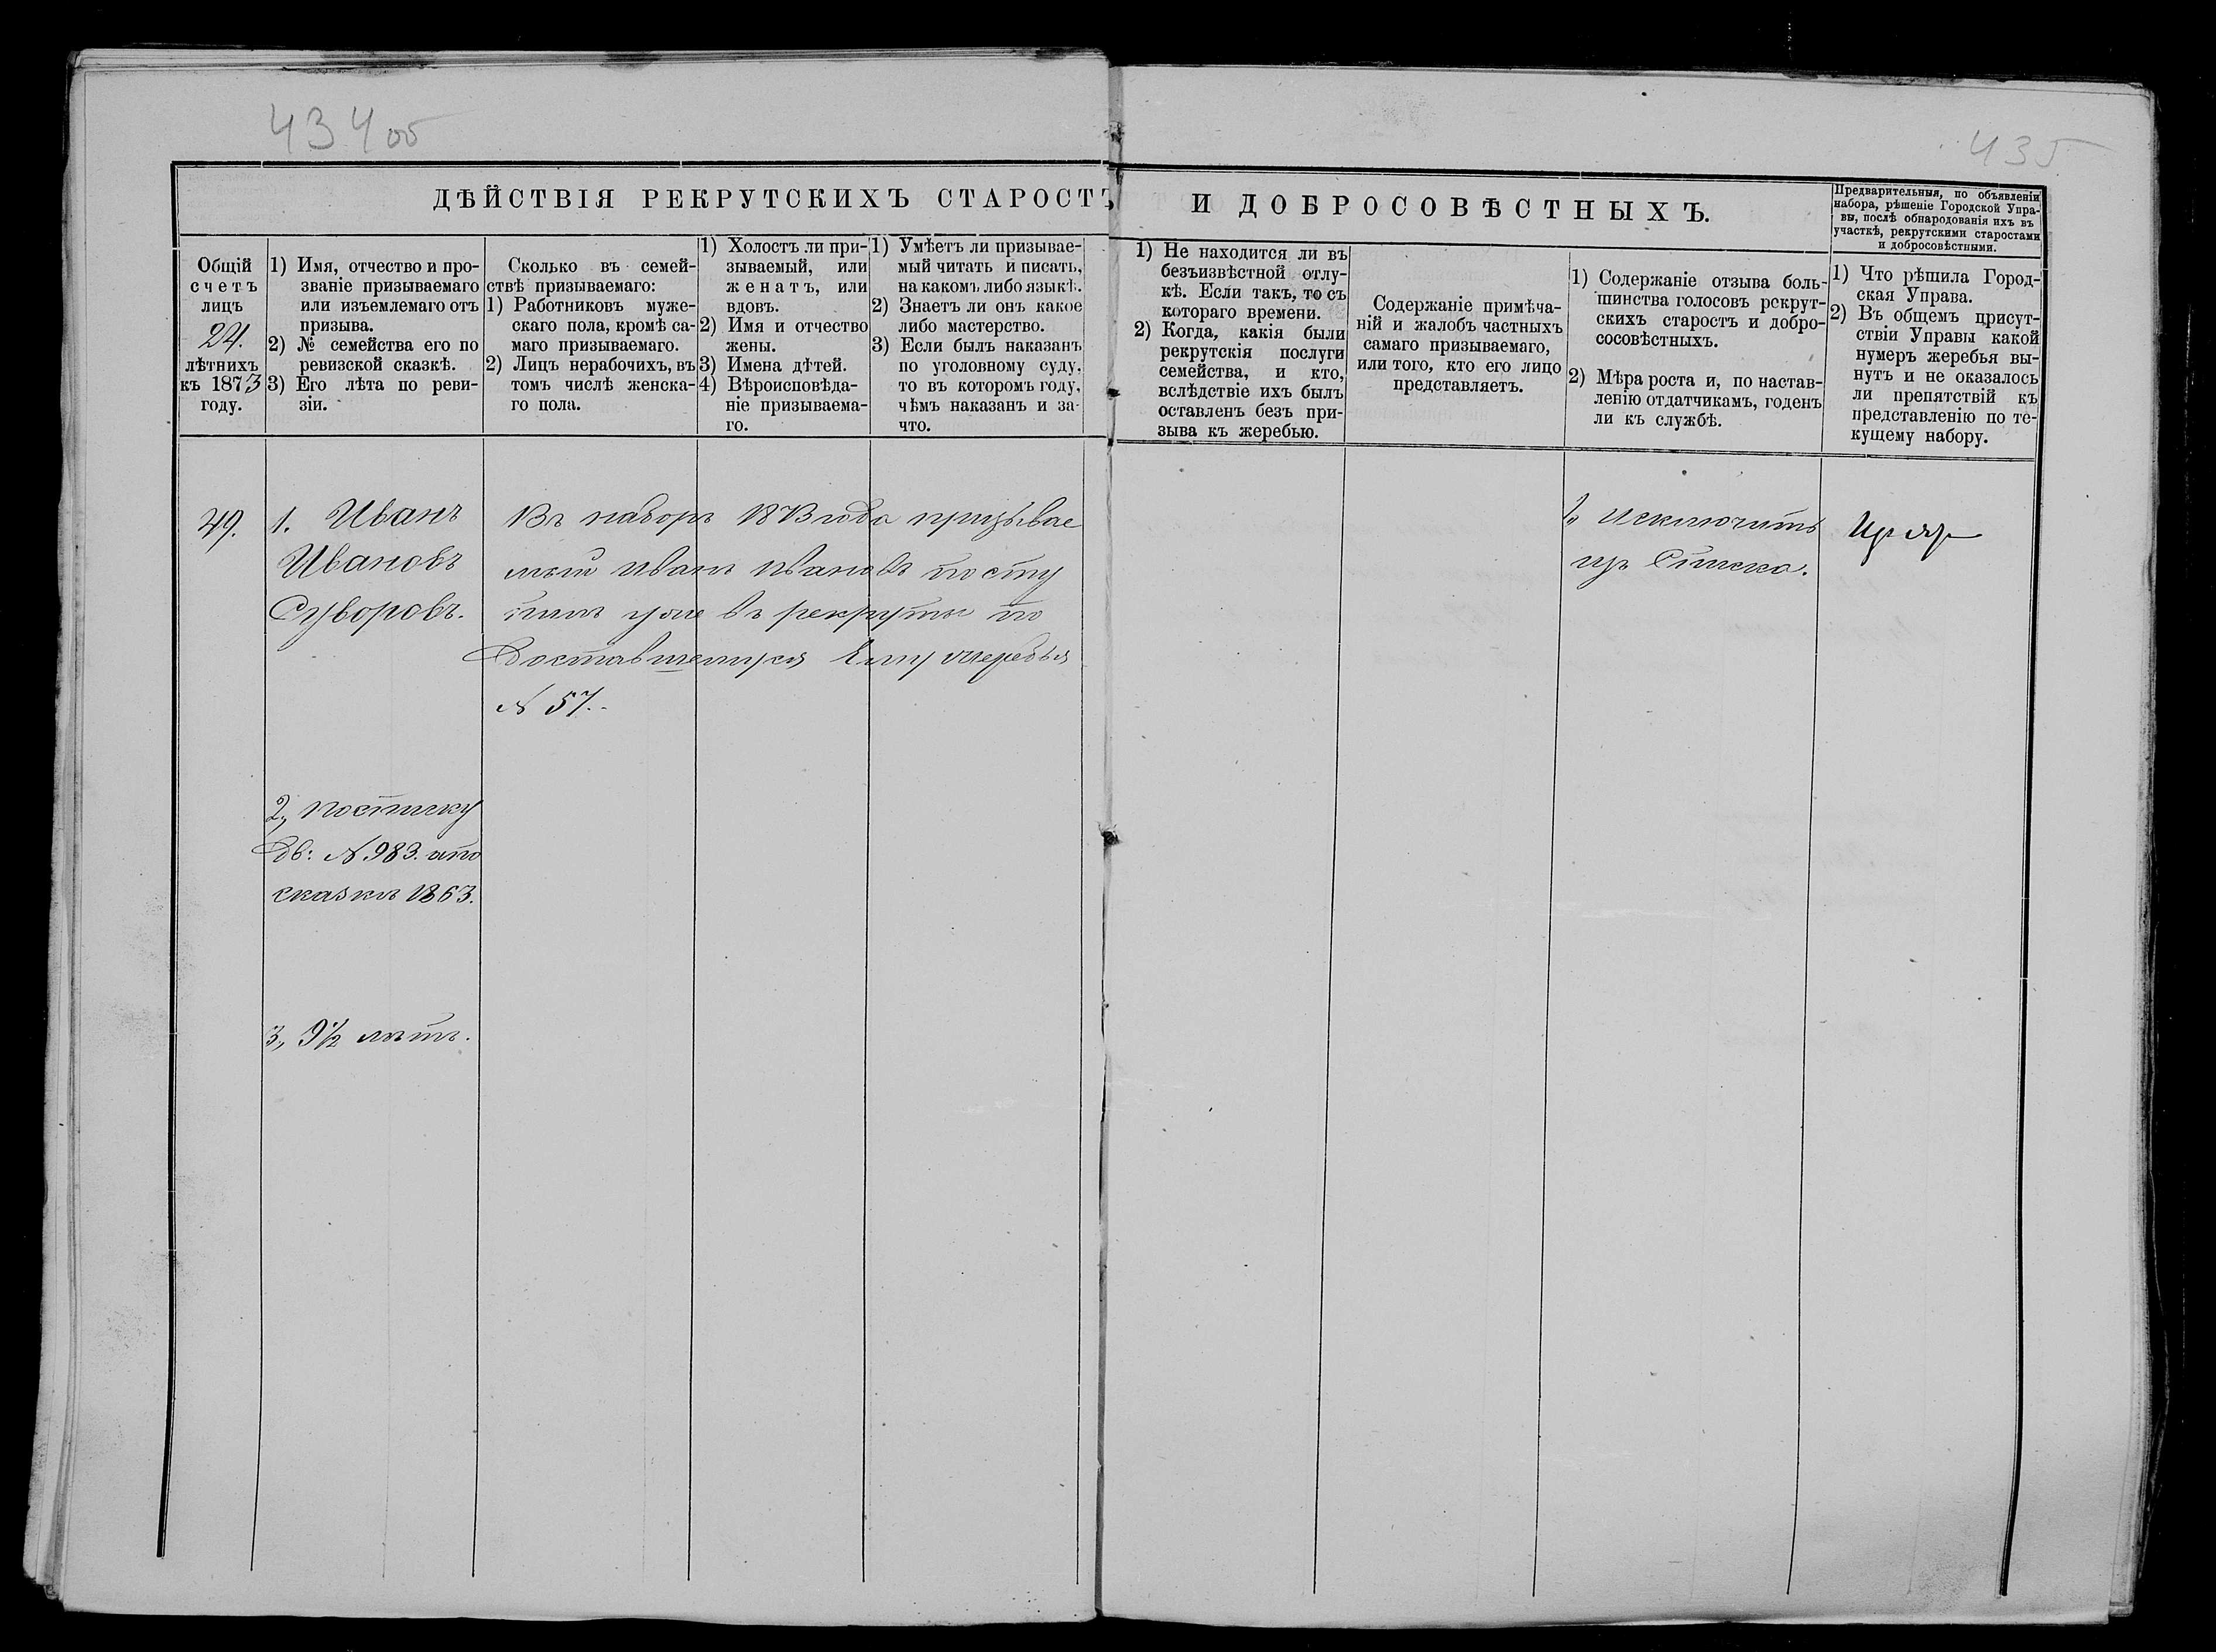 434 об
435
ДѢЙСТВІЯ РЕКРУТСКИХЪ СТАРОСТЪ
И ДОБРОСОВѢСТНЫХЪ.
Предварительныя, по объявленіи
набора, рѣшеніе Городской Упра-
вы, послѣ обнародованія ихъ въ
участкѣ, рекрутскими старостами
и добросовѣстными.
Общій
счетъ
лицъ
24.
лѣтнихъ
къ 1873
году.
1) Имя, отчество и про-
званіе призываемаго
или изъемлемаго отъ
призыва.
2) № семейства его по
ревизской сказкѣ.
3) Его лѣта по реви-
зіи.
Сколько въ семей-
ствѣ призываемаго:
1) Работниковъ муже-
скаго пола, кромѣ са-
маго призываемаго.
2) Лицъ нерабочихъ, въ
томъ числѣ женска-
го пола.
1) Холостъ ли при-
зываемый, или
женатъ, или
вдовъ.
2) Имя и отчество
жены.
3) Имена дѣтей.
4) Вѣроисповѣда-
ніе призываема-
го.
1) Умѣетъ ли призывае-
мый читать и писать,
на какомъ либо языкѣ.
2) Знаетъ ли онъ какое
либо мастерство.
3) Если былъ наказанъ
по уголовному суду,
то въ которомъ году,
чѣмъ наказанъ и за
что.
1) Не находится ли въ
безъизвѣстной отлу-
кѣ. Если такъ, то съ
котораго времени.
2) Когда, какія были
рекрутскія послуги
семейства, и кто,
вслѣдствіе ихъ былъ
оставленъ безъ при-
зыва къ жеребью.
Содержаніе примѣча-
ній и жалобъ частныхъ
самаго призываемаго,
или того, кто его лицо
представляетъ.
1) Содержаніе отзыва боль-
шинства голосовъ рекрут-
скихъ старостъ и добро-
сосовѣстныхъ.
2) Мѣра роста и, по настав-
ленію отдатчикамъ, годенъ
ли къ службѣ.
1) Что рѣшила Город-
ская Управа.
2) Въ общемъ црисут-
ствіи Управы какой
нумеръ жеребья вы-
нутъ и не оказалось
ли препятствій къ
представленію по те-
кущему набору.
49.
1. Иванъ
Ивановъ
Суворовъ.
2, посписку
дв: № 983. апо
сказкѣ 1863.
3, 9½ лѣтъ.
Въ наборъ 1873 года призывае
мый Иванъ Ивановъ посту
пилъ уже въ рекруты по
доставшемуся Ему жеребья
№ 57.
1, Исключить
изъ Списка.